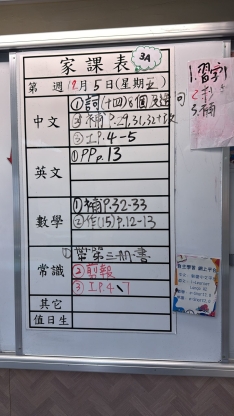 家課表 3A
第 週 12月5日(星期五)
中文 ①詞(十四)8個及造句
②補P.29,31,32+改
③工P.4-5
英文 ①PP.13
數學 ①補P.32-33
②作(15)P.12-13
常識 ①帶第三冊書
②剪報
③工P.4
其它
值日生
1.習字
3.補